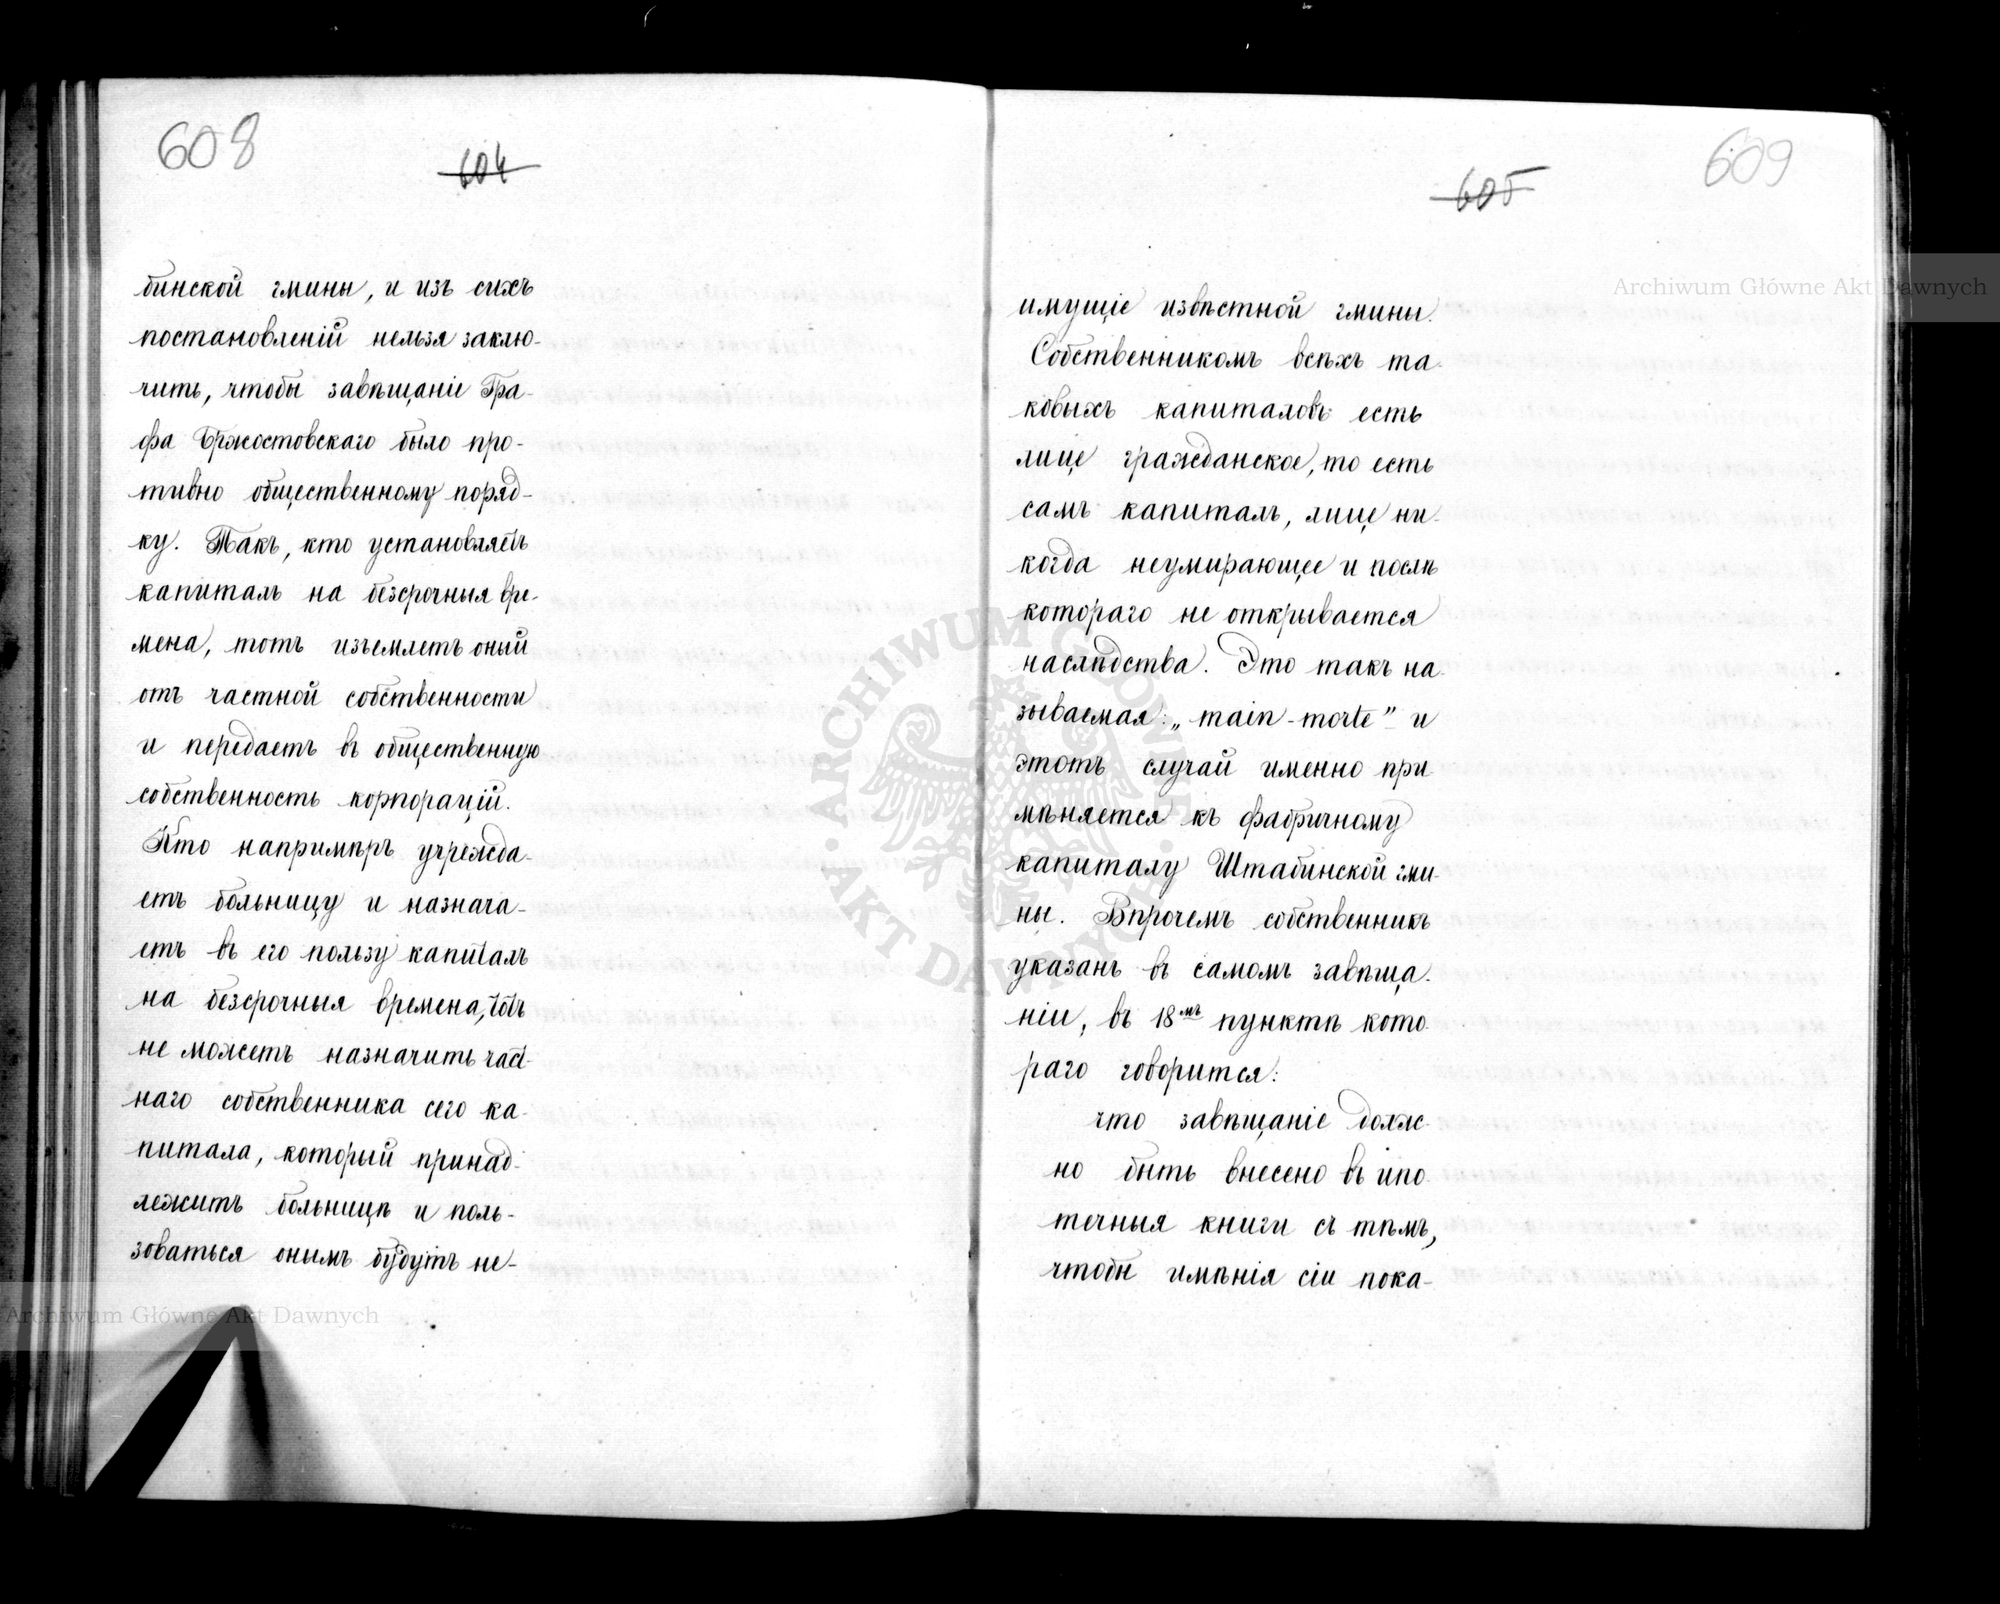 608
604
бинской гмины, и изъ сихъ
постановленій нельзя заклю-
чить, чтобы завѣщаніе Гра-
фа Бржостовскаго было про-
тивно общественному поряд-
ку. Такъ, кто установляетъ
капиталъ на безсрочныя вре-
мена, тотъ изъемлетъ оный
отъ частной собственности
и передаетъ въ общественную
собственность корпорацій.
Кто напримѣръ учрежда-
етъ больницу и назнача-
етъ въ его пользу капиталъ
на безсрочныя времена, тотъ
не можетъ назначить част-
наго собственника сего ка-
питала, который принад-
лежитъ больницѣ и поль-
зоваться онымъ будутъ не-
609
605
имущіе извѣстной гмины.
Собственникомъ всѣхъ та-
ковыхъ капиталовъ есть
лице гражданское, то есть
самъ капиталъ, лице ни-
когда неумирающее и послѣ
котораго не открывается
наслѣдства. Это такъ на-
зываемая: „main-morte" и
этотъ случай именно при-
мѣняется къ фабричному
капиталу Штабинской гми-
ны. Впрочемъ собственникъ
указанъ въ самомъ завѣща-
ніи, въ 18мъ пунктѣ кото-
раго говорится:
что завѣщаніе долж-
но быть внесено въ ипо-
течныя книги съ тѣмъ,
чтобы имѣнія сіи пока-
Archiwum Główne Akt Dawnych
Archiwum Główne Akt Dawnych
ARCHIWUM GŁÓWNE AKT DAWNYCH